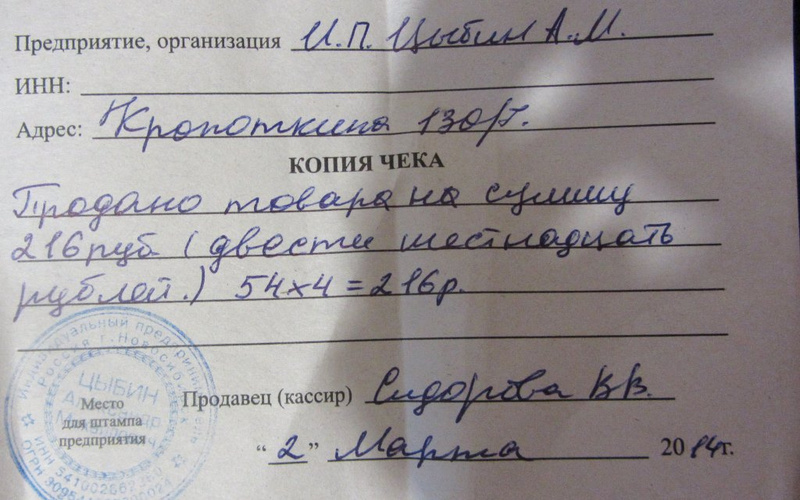 Предприятие, организация И.П. Цыбин А.М.
ИНН:
Адрес: Кропоткина 130/7.
КОПИЯ ЧЕКА
Продано товара на сумму
216 руб (двести шестнадцать
рублей.) 54х4=216р.
Индивидуальный предприниматель
Россия г. Новосибирск
ЦЫБИН
Александр
Место
для штампа
предприятия
Продавец (кассир) Сидорова В.В.
"2" Марта 2014г.